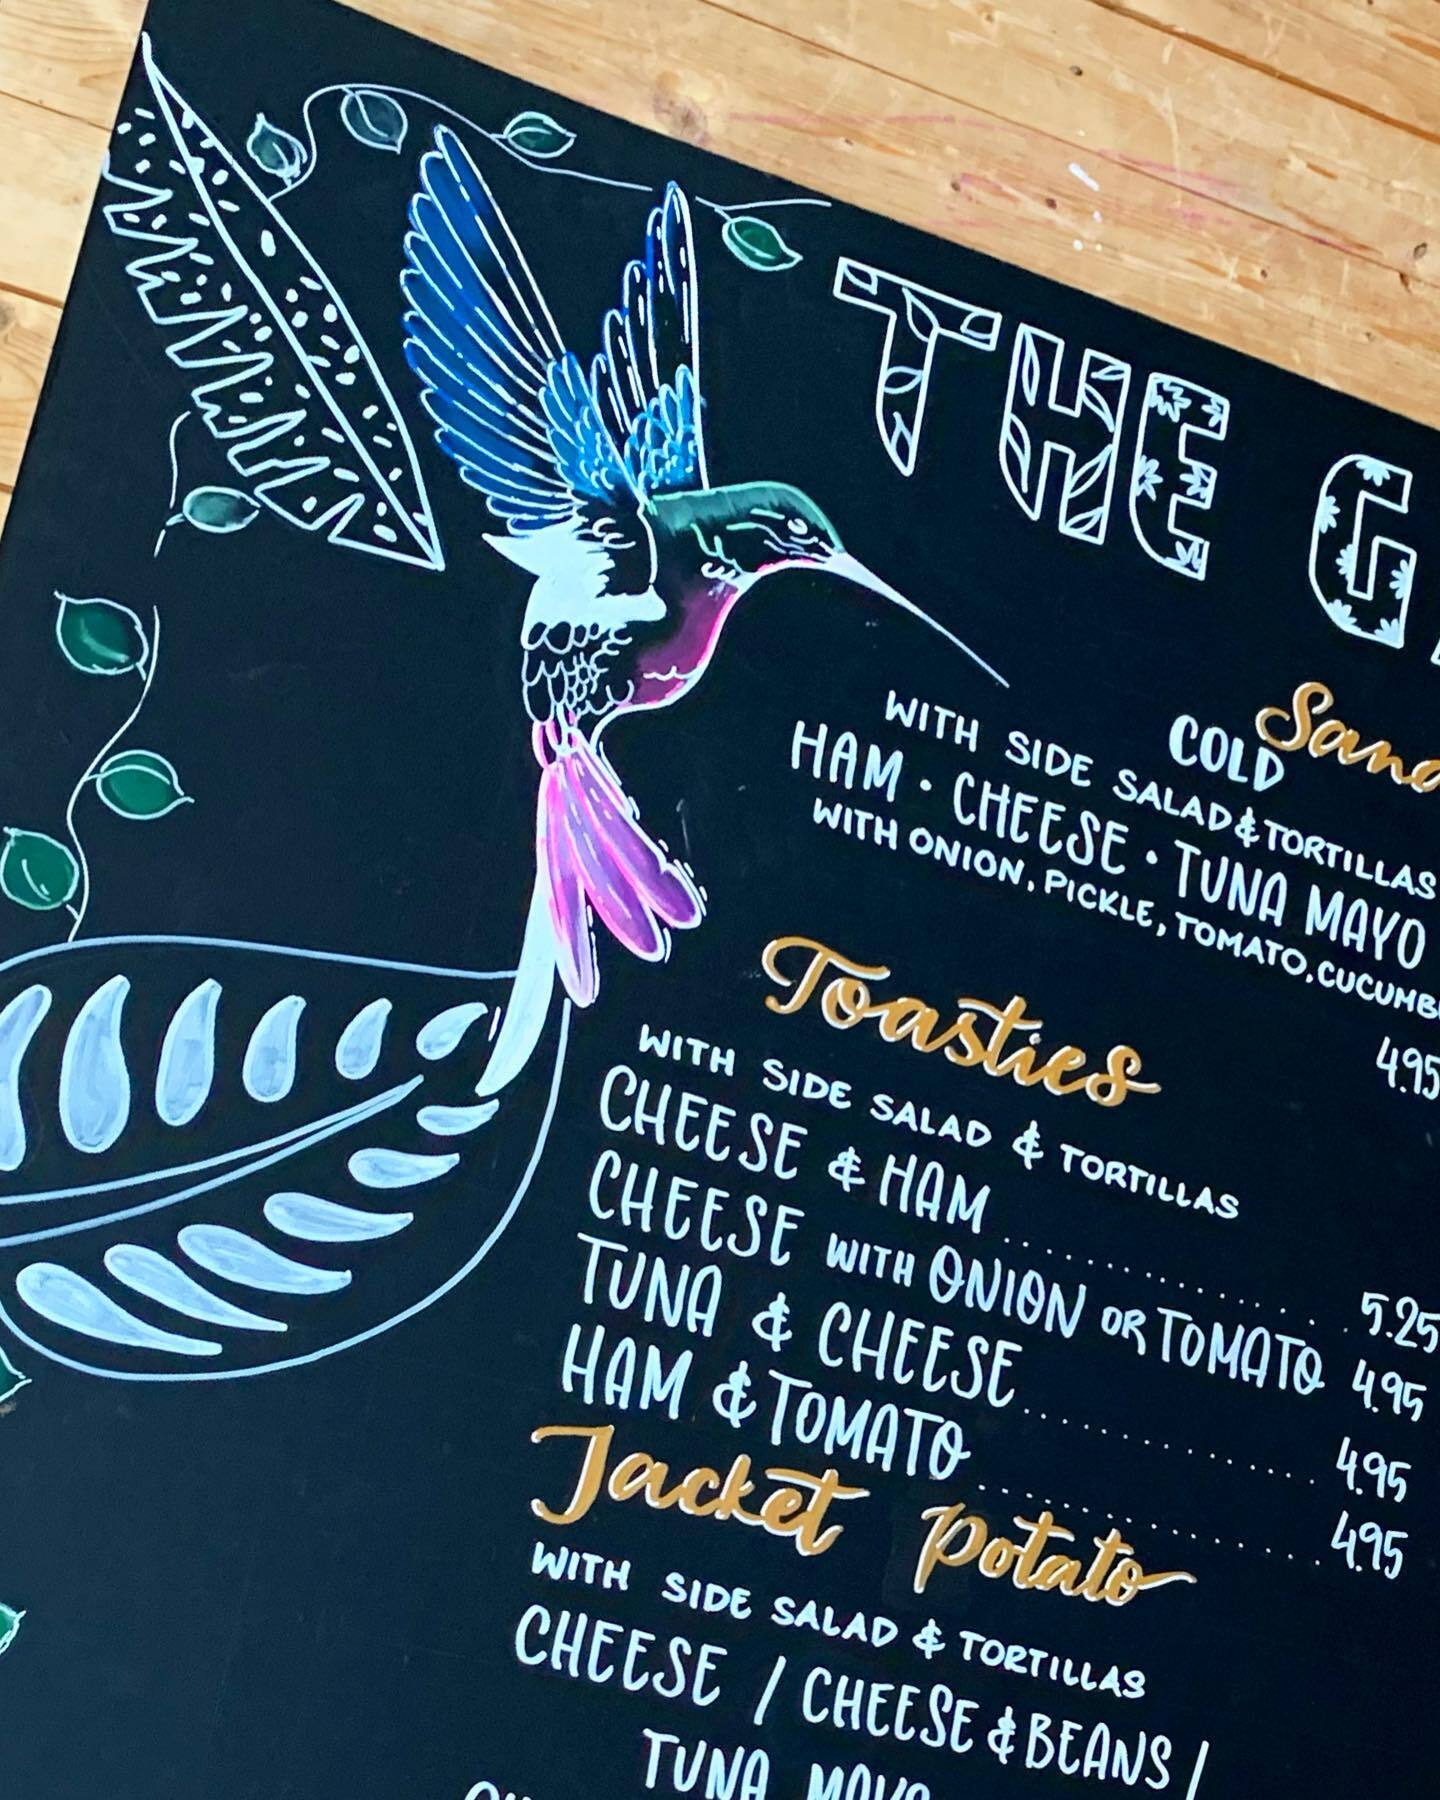 THE G
COLD
WITH SIDE SALAD & TORTILLAS
HAM · CHEESE · TUNA MAYO
WITH ONION, PICKLE, TOMATO,
4.95
Toasties
WITH SIDE SALAD & TORTILLAS
CHEESE & HAM ............ 5.25
CHEESE WITH ONION OR TOMATO 4.95
TUNA & CHEESE ............ 4.95
HAM & TOMATO ............ 4.95
Jacket Potato
WITH SIDE SALAD & TORTILLAS
CHEESE / CHEESE & BEANS /
TUNA MAYO